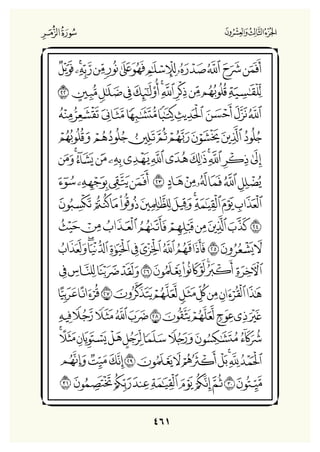 الجُزْءُ الثَّالِثُ وَالعِشْرُونَ سُورَةُ الزُّمَرِ
أَفَمَن شَرَحَ ٱللَّهُ صَدْرَهُۥ لِلْإِسْلَٰمِ فَهُوَ عَلَىٰ نُورٍ مِّن رَّبِّهِۦ ۚ فَوَيْلٌ
لِّلْقَٰسِيَةِ قُلُوبُهُم مِّن ذِكْرِ ٱللَّهِ ۚ أُو۟لَٰٓئِكَ فِى ضَلَٰلٍ مُّبِينٍ ٢٢
ٱللَّهُ نَزَّلَ أَحْسَنَ ٱلْحَدِيثِ كِتَٰبًا مُّتَشَٰبِهًا مَّثَانِىَ تَقْشَعِرُّ مِنْهُ
جُلُودُ ٱلَّذِينَ يَخْشَوْنَ رَبَّهُمْ ثُمَّ تَلِينُ جُلُودُهُمْ وَقُلُوبُهُمْ
إِلَىٰ ذِكْرِ ٱللَّهِ ۚ ذَٰلِكَ هُدَى ٱللَّهِ يَهْدِى بِهِۦ مَن يَشَآءُ ۚ وَمَن
يُضْلِلِ ٱللَّهُ فَمَا لَهُۥ مِنْ هَادٍ ٢٣ أَفَمَن يَتَّقِى بِوَجْهِهِۦ سُوٓءَ
ٱلْعَذَابِ يَوْمَ ٱلْقِيَٰمَةِ ۚ وَقِيلَ لِلظَّٰلِمِينَ ذُوقُوا۟ مَا كُنتُمْ تَكْسِبُونَ
٢٤ كَذَّبَ ٱلَّذِينَ مِن قَبْلِهِمْ فَأَتَىٰهُمُ ٱلْعَذَابُ مِنْ حَيْثُ
لَا يَشْعُرُونَ ٢٥ فَأَذَاقَهُمُ ٱللَّهُ ٱلْخِزْىَ فِى ٱلْحَيَوٰةِ ٱلدُّنْيَا ۖ وَلَعَذَابُ
ٱلْءَاخِرَةِ أَكْبَرُ ۚ لَوْ كَانُوا۟ يَعْلَمُونَ ٢٦ وَلَقَدْ ضَرَبْنَا لِلنَّاسِ فِى
هَٰذَا ٱلْقُرْءَانِ مِن كُلِّ مَثَلٍ لَّعَلَّهُمْ يَتَذَكَّرُونَ ٢٧ قُرْءَانًا عَرَبِيًّا
غَيْرَ ذِى عِوَجٍ لَّعَلَّهُمْ يَتَّقُونَ ٢٨ ضَرَبَ ٱللَّهُ مَثَلًا رَّجُلًا فِيهِ
شُرَكَآءُ مُتَشَٰكِسُونَ وَرَجُلًا سَلَمًا لِّرَجُلٍ هَلْ يَسْتَوِيَانِ مَثَلًا ۚ
ٱلْحَمْدُ لِلَّهِ ۚ بَلْ أَكْثَرُهُمْ لَا يَعْلَمُونَ ٢٩ إِنَّكَ مَيِّتٌ وَإِنَّهُم
مَّيِّتُونَ ٣٠ ثُمَّ إِنَّكُمْ يَوْمَ ٱلْقِيَٰمَةِ عِندَ رَبِّكُمْ تَخْتَصِمُونَ ٣١
٤٦١